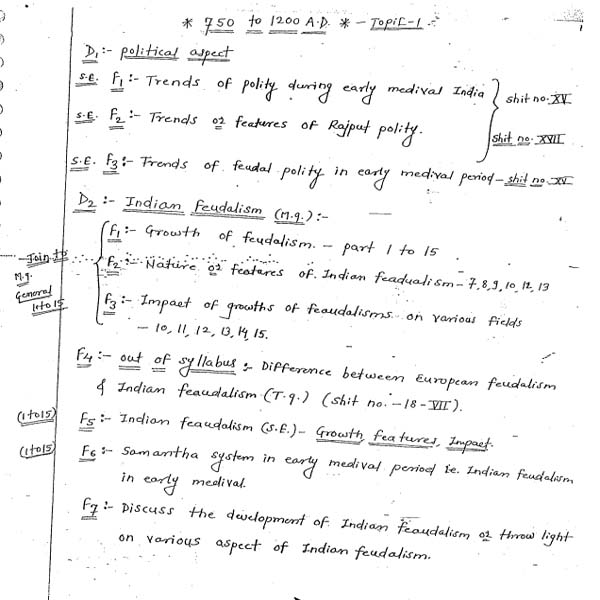 * 750 to 1200 A.D. * - Topic-1 :-
D1 :- political aspect
S.E. F1 :- Trends of polity during early medival India
shit no. XV
S.E. F2 :- Trends or features of Rajput polity.
shit no. XVII
S.E. F3 :- Trends of feudal polity in early medival period - shit no. XV
D2 :- Indian Feudalism (M.q.) :-
F1 :- Growth of feudalism. - part 1 to 15
Join to
M.q.
General
1 to 15
F2 :- Nature or features of Indian feadualism - 7,8,9,10,12,13
F3 :- Impact of growths of feaudalisms on various fields
- 10, 11, 12, 13, 14, 15.
F4 :- out of syllabus :- Difference between European feudalism
& Indian feaudalism (T.q.) (shit no. - 18 - VII).
(1 to 15) F5 :- Indian feaudalism (S.E.) - Growth, features, Impact.
(1 to 15) F6 :- Samantha system in early medival period ie. Indian feudalism
in early medival.
F7 :- Discuss the development of Indian feaudalism or throw light
on various aspect of Indian feudalism.